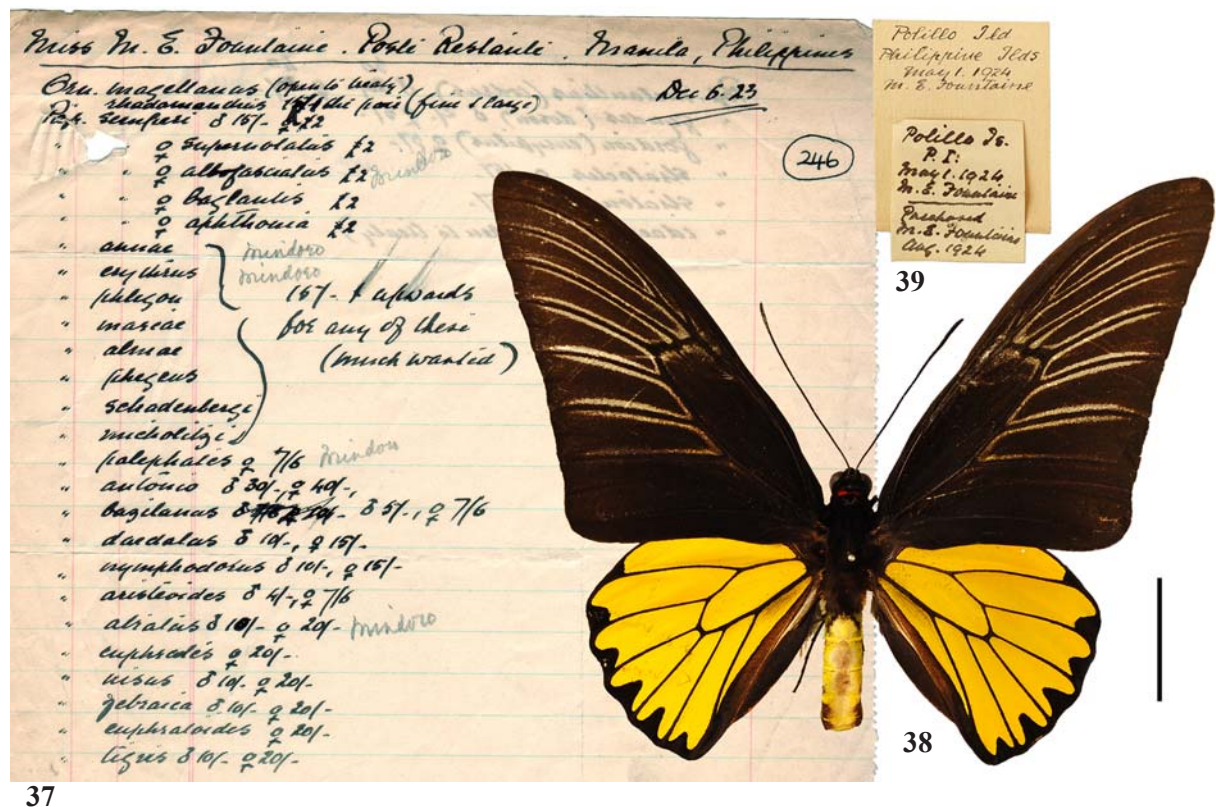 Miss M. E. Fountaine. Posti Restanti. Manila, Philippines
Dec 6. 23
Orn. magellanus (open to treaty)
rhadamanthus the pair (fine & large)
Pap. semperi ♂ 15/- ♀ £2
" " ♀ supernotatus £2
" " ♀ albofasciatus £2 Mindoro
" " ♀ baglantis £2
" " ♀ aphthonia £2
" annae Mindoro
" erythrus Mindoro
" phlegon 15/- & upwards
" mariae for any of these
" almae (much wanted)
" phegeus
" schadenbergi
" micholitzi
" palephates ♀ 7/6 Mindoro
" antonio ♂ 30/-, ♀ 40/-,
" bazilanus ♂ 5/-, ♀ 7/6
" daedalus ♂ 10/-, ♀ 15/-
" nymphodorus ♂ 10/-, ♀ 15/-
" aristeoides ♂ 4/-, ♀ 7/6
" atratus ♂ 10/- ♀ 20/- Mindoro
" euphrates ♀ 20/-
" nisus ♂ 10/- ♀ 20/-
" gebraica ♂ 10/- ♀ 20/-
" euphratoides ♀ 20/-
" tigris ♂ 10/- ♀ 20/-
246
37
Polillo Ild
Philippine Ilds
May 1. 1924
M. E. Fountaine
Polillo Is.
P. I:
May 1. 1924
M. E. Fountaine
Purchased
M. E. Fountaine
Aug. 1924
39
38